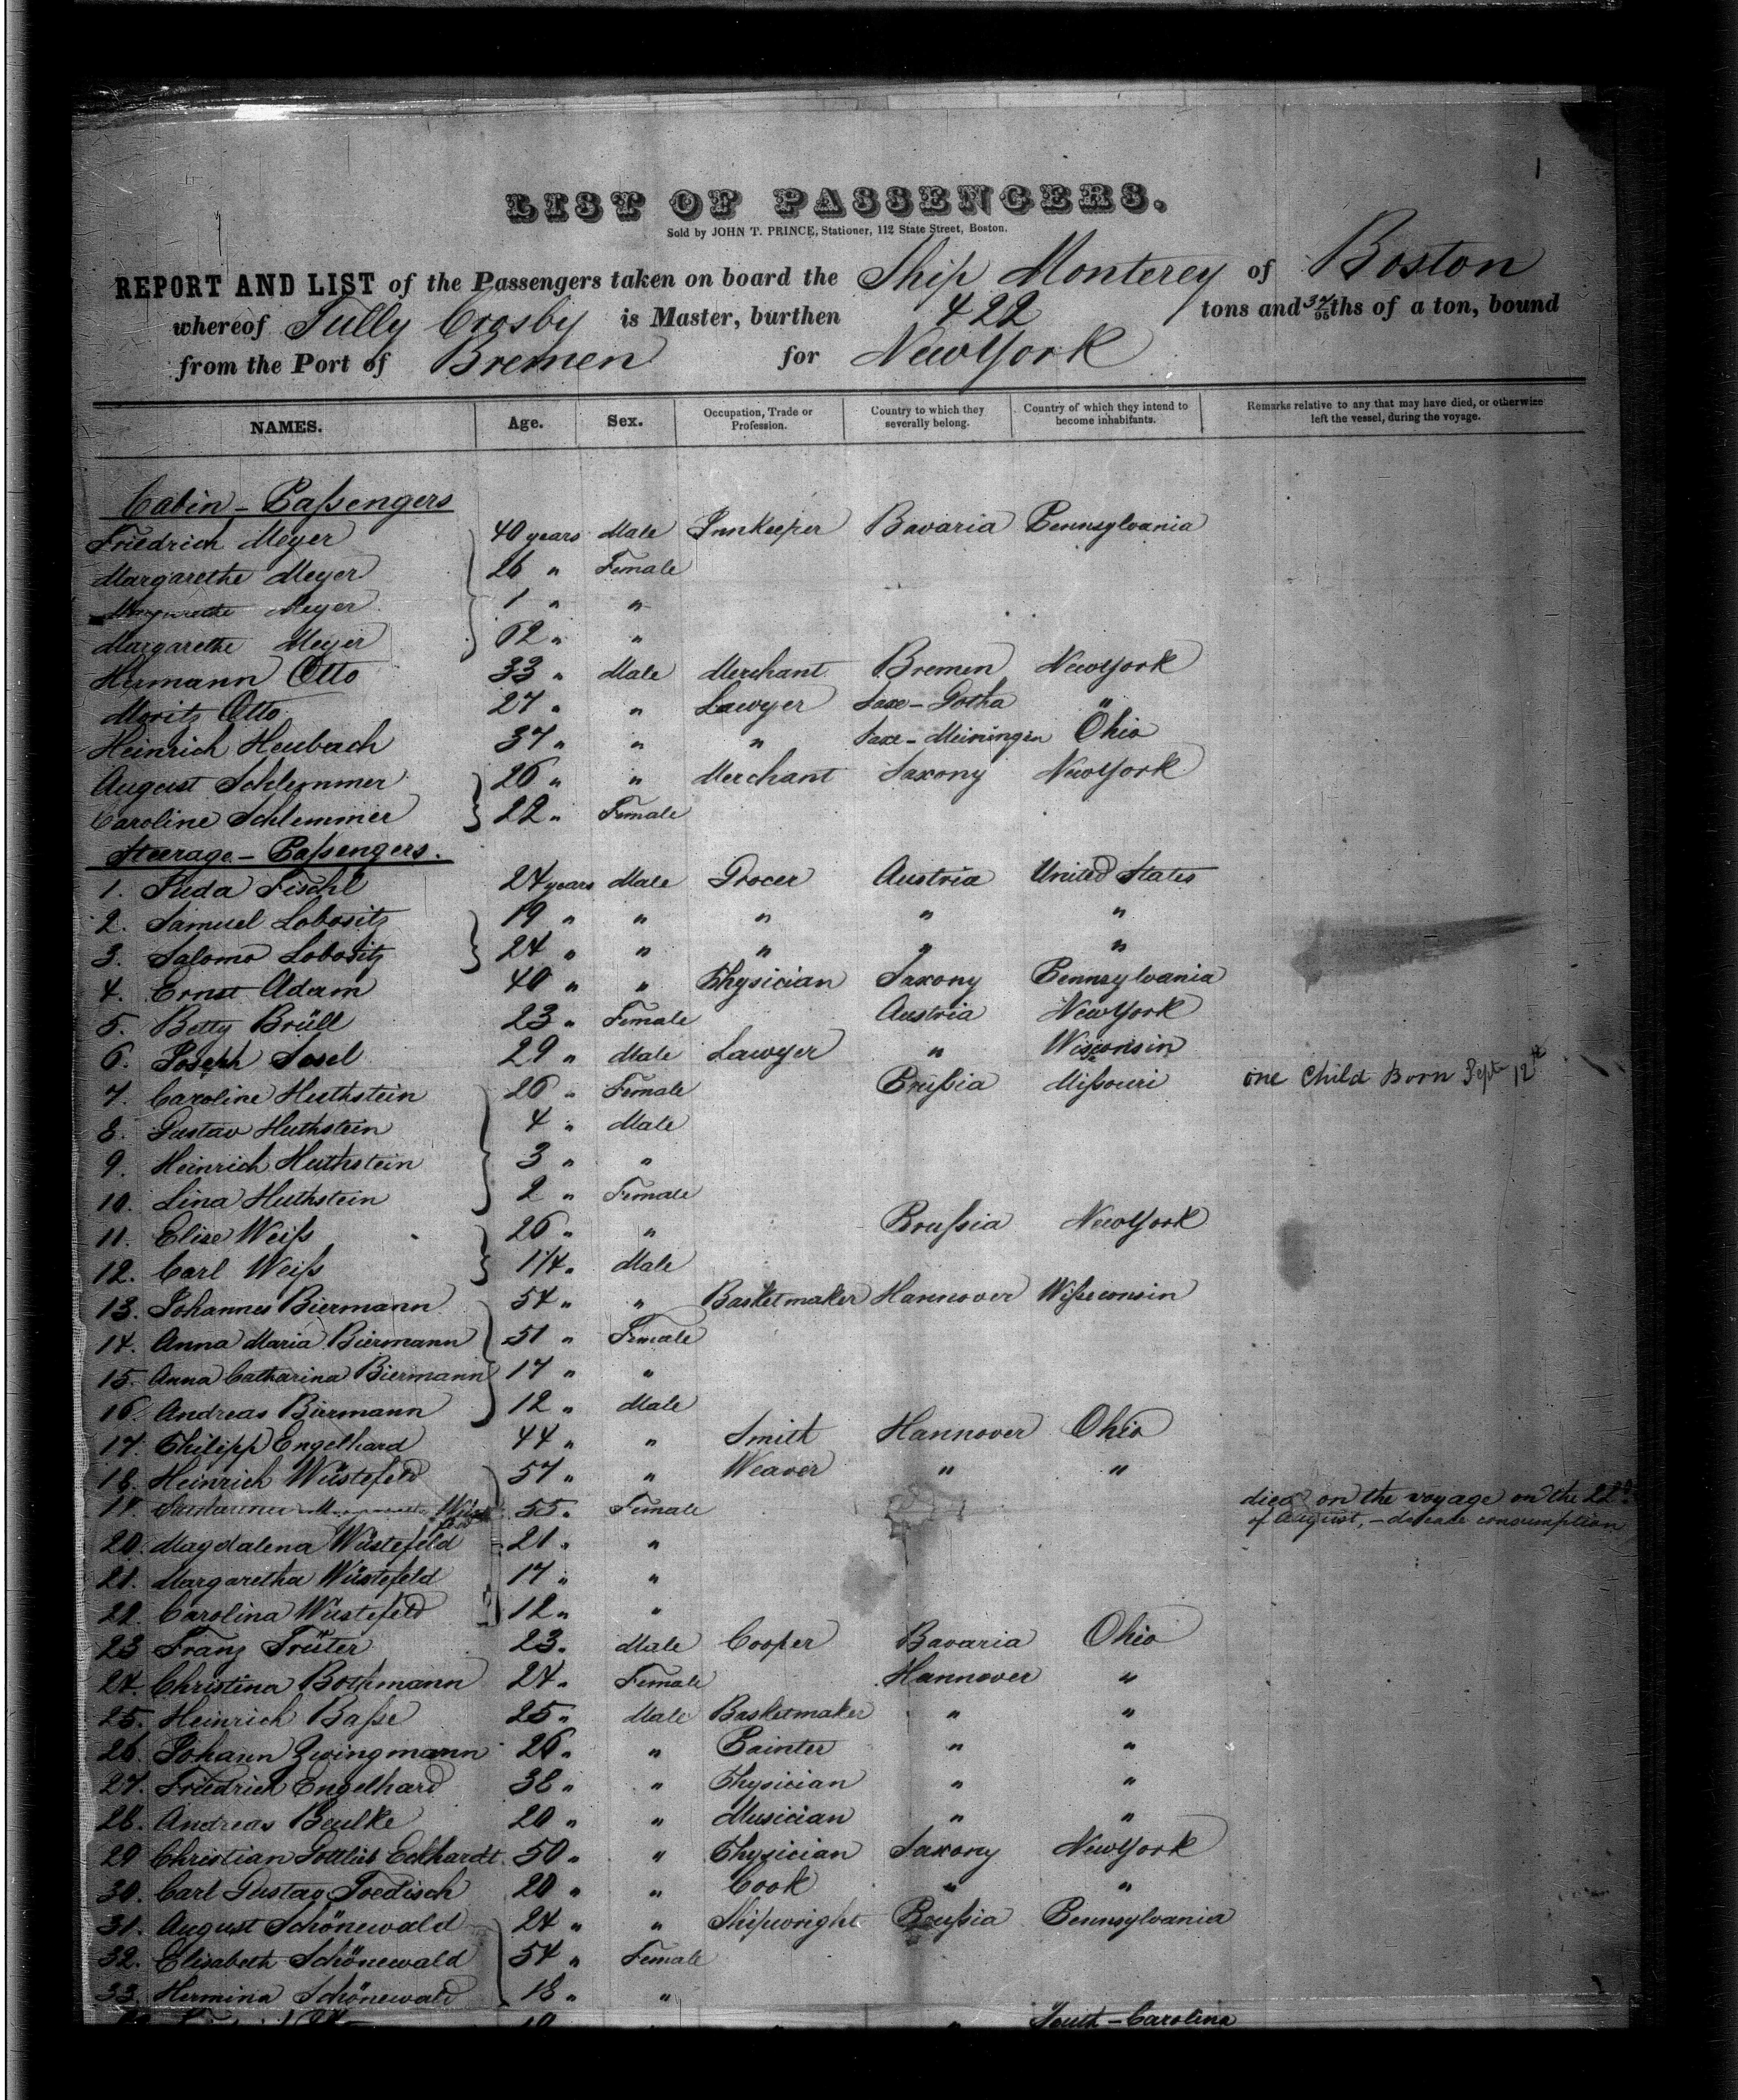 1
LIST OF PASSENGERS.
Sold by JOHN T. PRINCE, Stationer, 112 State Street, Boston.
REPORT AND LIST of the Passengers taken on board the Ship Monterey of Boston
whereof Tully Crosby is Master, burthen 422 tons and 34/95ths of a ton, bound
from the Port of Bremen for New York
NAMES. Age. Sex. Occupation, Trade or Profession. Country to which they severally belong. Country of which they intend to become inhabitants. Remarks relative to any that may have died, or otherwise left the vessel, during the voyage.
Cabin - Passengers
Friedrich Meyer 40 years Male Innkeeper Bavaria Pennsylvania
Margarethe Meyer 26 " Female
Margarethe Meyer 1 " "
Margarethe Meyer 62 " "
Hermann Otto 33 " Male Merchant Bremen New York
Moritz Otto 27 " " Lawyer Saxe-Gotha "
Heinrich Heubach 37 " " " Saxe-Meiningen Ohio
August Schlemmer 26 " " Merchant Saxony New York
Caroline Schlemmer 22 " Female
Steerage - Passengers.
1. Juda Fischl 24 years Male Grocer Austria United States
2. Samuel Lobositz 19 " " " " "
3. Salomo Lobositz 24 " " " " "
4. Ernst Adam 40 " " Physician Saxony Pennsylvania
5. Betty Brüll 23 " Female Austria New York
6. Joseph Sosel 29 " Male Lawyer " Wisconsin
7. Caroline Huthstein 26 " Female Prussia Missouri one Child Born Sept 12th
8. Gustav Huthstein 4 " Male
9. Heinrich Huthstein 3 " "
10. Lina Huthstein 2 " Female
11. Elise Weiss 26 " " Prussia New York
12. Carl Weiss 1 1/4 " Male
13. Johannes Biermann 54 " " Basketmaker Hannover Wisseconsin
14. Anna Maria Biermann 51 " Female
15. Anna Catharina Biermann 17 " "
16. Andreas Biermann 12 " Male
17. Philipp Engelhard 44 " " Smith Hannover Ohio
18. Heinrich Wüstefeld 57 " " Weaver " "
19. 55 " Female died on the voyage on the 22d
of August, - disease consumption
20. Magdalena Wüstefeld 21 " "
21. Margaretha Wüstefeld 17 " "
22. Carolina Wüstefeld 12 " "
23 Franz Trüter 23 " Male Cooper Bavaria Ohio
24. Christina Bothmann 24 " Female Hannover "
25. Heinrich Basse 25 " Male Basketmaker " "
26. Johann Zwingmann 26 " " Painter " "
27. Friedrich Engelhard 38 " " Physician " "
28. Andreas Beulke 20 " " Musician " "
29 Christian Gottlieb Eckhardt 50 " " Physician Saxony New York
30. Carl Gustav Toedisch 20 " " Cook " "
31. August Schönewald 24 " " Shipwright Prussia Pennsylvania
32. Elisabeth Schönewald 54 " Female
33. Hermina Schönewald 18 " "
South-Carolina